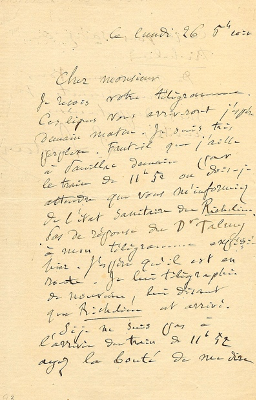 ce lundi 26
Cher monsieur
Je reçois votre télégramme.
Ces lignes vous arriveront j'espère
demain matin. Je suis très
perplexe. Faut-il que j'aille
à Pauillac demain par
le train de 11h 52 ou dois-je
attendre que vous m'informiez
de l'état sanitaire du Richelieu.
Pas de réponse du Dr
à mon télégramme expédié
hier. J'espère qu'il est en
route. Je lui télégraphie
de nouveau lui disant
que Richelieu est arrivé.
Si je ne suis pas à
l'arrivée du train de 11h 52
ayez la bonté de me dire